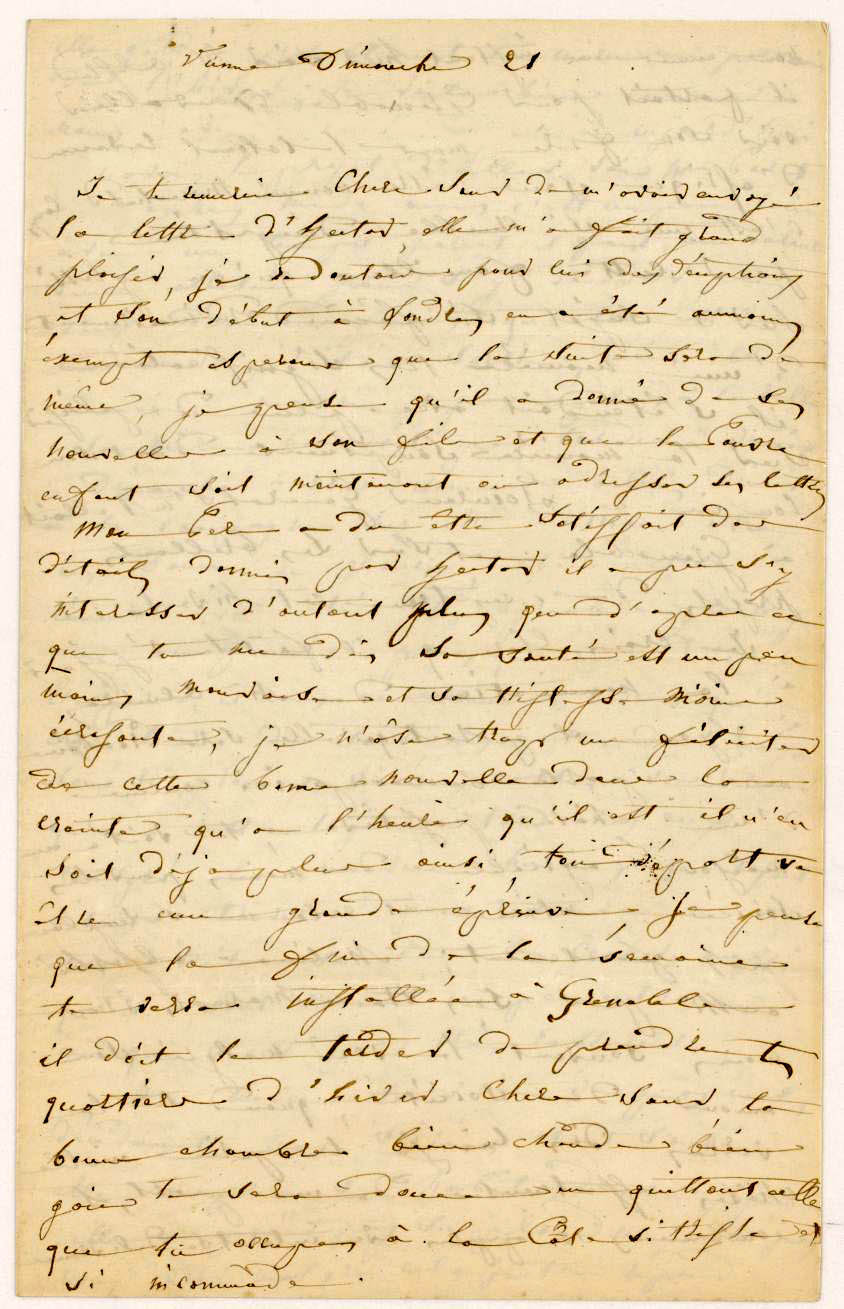 Vienne Dimanche 21
Je te remercie Chere Soeur de m'avoir envoyé
la lettre d'Hector, elle m'a fait grand
plaisir, je redoutais pour lui des déceptions
et son début à Londres en a été aumoins
éxempt esperons que la suite sera de
même, je pense qu'il a donné de ses
nouvelles à son fils et que le Pauvre
enfant sait maintenant ou adresser ses lettres
Mon Pere a du être satisfait des
détails donnés par Hector il a pu s'y
interesser d'autant plus que d'apres ce
que tu me dis sa santé est un peu
moins mauvaise et sa tristesse moins
écrasante, je n'ose trop me féliciter
de cette bonne nouvelle dans la
crainte qu'a l'heure qu'il est il n'en
soit déja plus ainsi, ton départ va
être une grande épreuve je pense
que la fin de la semaine
te verra installée à Grenoble
il doit te tarder de prendre tes
quartiers d'hiver Chere Soeur ta
bonne chambre bien chaude bien
gaie te sera douce en quittant celle
que tu occupes à la Côte si triste et
si incommode.